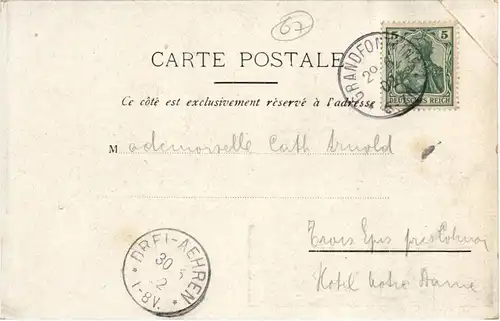 67
CARTE POSTALE
5 5
DEUTSCHES REICH
GRANDFO
29
02
Ce côté est exclusivement réservé à l'adresse
Mademoiselle Cath Arnold
Trois Epis près Colmar
Hotel Notre Dame
* DREI-AEHREN *
30
5
2
1-8V.